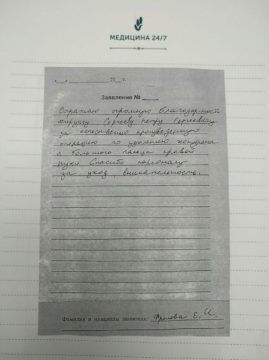 МЕДИЦИНА 24/7
20 г.
Заявление №
Выражаю огромную благодарность
хирургу Сергееву Петру Сергеевичу
за качественно произведенную
операцию по удалению
с большого пальца правой
руки Спасибо персоналу
за уход, внимательность.
Фамилия и инициалы заявителя: Фролова Е. И.